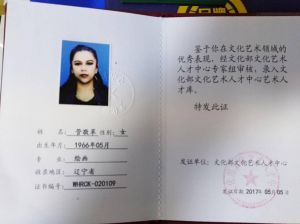 姓 名：曾敬革 性别：女
出生年月：1966年05月
专 业：绘画
收录地区：辽宁省
证书编号：WHRCK-020109
鉴于你在文化艺术领域的
优秀表现，经文化部文化艺术
人才中心专家组审核，录入文
化部文化艺术人才中心艺术人
才库。
特发此证
发证单位：文化部文化艺术人才中心
发证日期 2017年05月05日